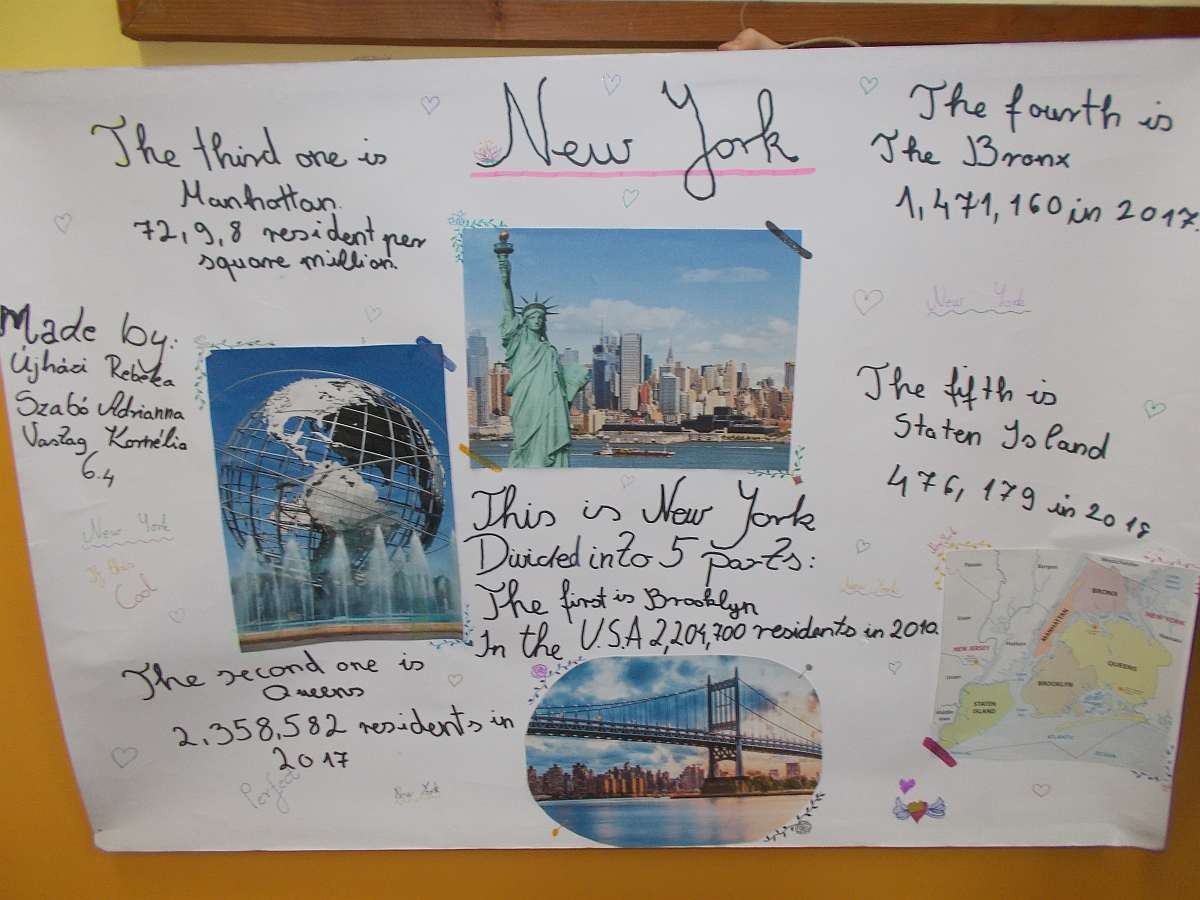 New York
The third one is
Manhattan.
72,9,8 resident per
square million.
The fourth is
The Bronx
1,471,160 in 2017.
New York
Made by:
Újházi Rebeka
Szabó Adrianna
Vastag Kornélia
6.4
New York
Cool
The fifth is
Staten Island
476,179 in 2018
This is New York
Divided into 5 parts:
The first is Brooklyn
In the U.S.A 2,204,700 residents in 2010.
New York
The second one is
Queens
2,358,582 residents in
2017
Perfect
New York
BRONX
MANHATTAN
NEW YORK
NEW JERSEY
QUEENS
BROOKLYN
STATEN
ISLAND
ATLANTIC
OCEAN